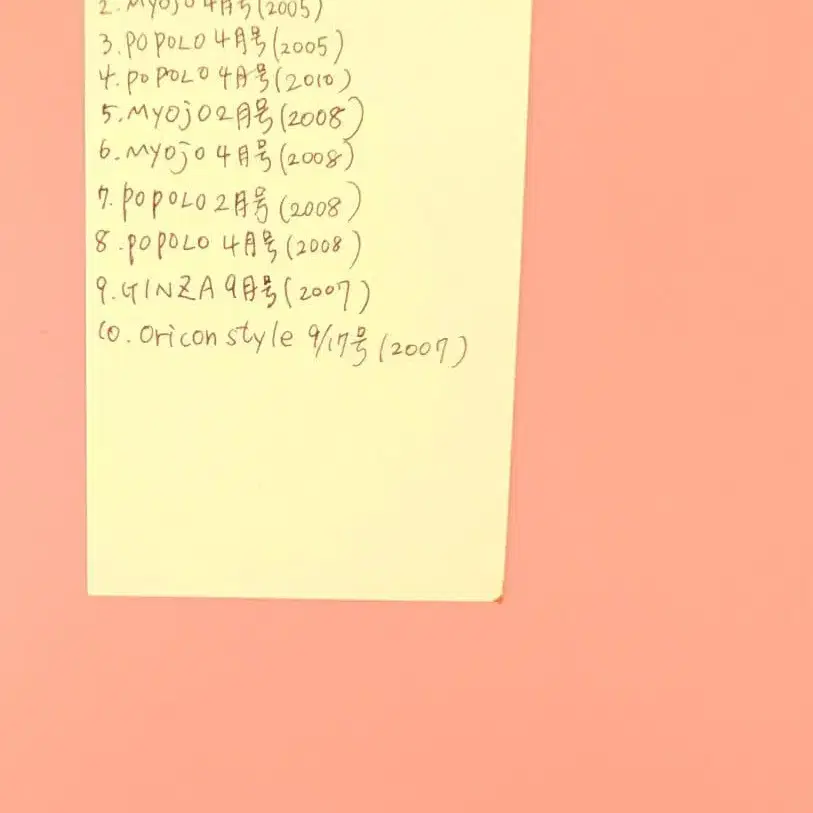 2. MYOJO 4月号(2005)
3. POPOLO 4月号(2005)
4. POPOLO 4月号(2010)
5. MYOJO 2月号(2008)
6. MYOJO 4月号(2008)
7. POPOLO 2月号(2008)
8. POPOLO 4月号(2008)
9. GINZA 9月号(2007)
10. Oricon style 9/17号(2007)